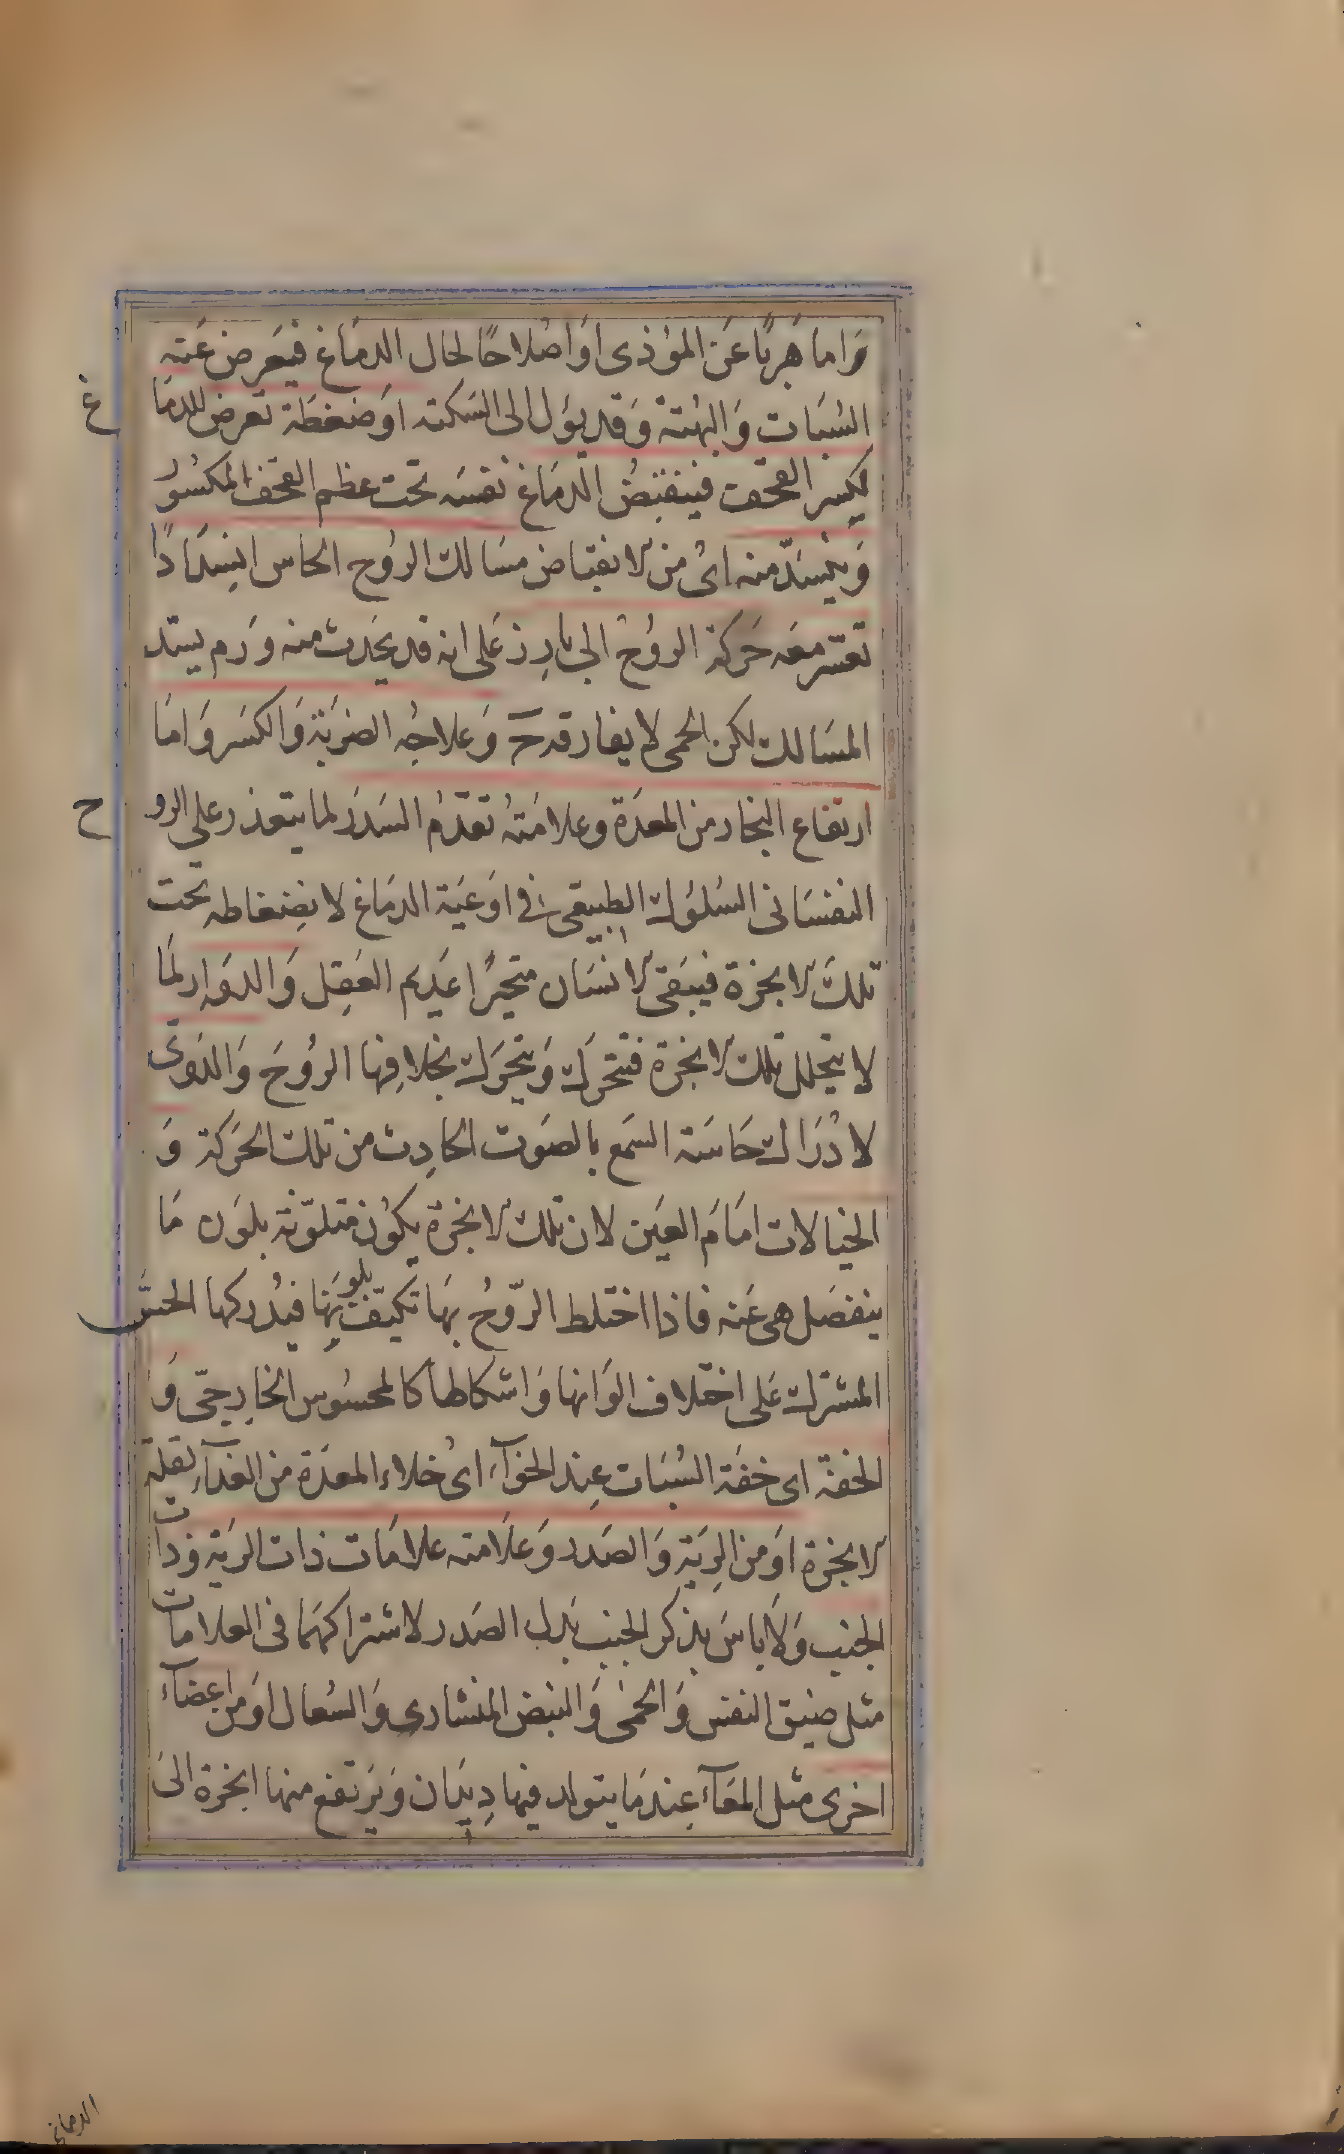 وَاما هَربًا عَن الموُذى اوَ اصْلاحًا لحال الدمَاغ فيَعرض عَنه
السُبَات وَالبهُتة وَقد يؤل الى السَكته اوَ ضغطة تعرض للدمَاغ
بكسر القحف فينقبَضُ الدمَاغ نفسَه تحت عظم القحف المكسُور
وَينسَدّ منه اىْ من الانقباض مسَالك الروُح الحاس انسِدَادًا
تعسر معَه حَركة الروُح الى بارِز عَلى انه قد يحَدث منه وَرم يسد
المسَالك لكن الحمى لا يفارقه حَ وَعلاجُه الضربَة وَالكسَر وَامَا
ارتفاع البخار من المعدَة وعلامَتهُ تقدّمُ السَدَر لما يتعذر على الروح
النفسَانى السُلوُك الطبيعى فى اوَعيَة الدمَاغ لانضِغاطه تحت
تلكَ الابخرة فيبَقى الانسَان متحيرًا عَديم العَقِل وَالدوَار لمَا
لا يتحلل تلك الابخرة فتتحرَك وَيتحرَك بخلافِها الروُحَ وَالدَوىّ
لادْرَاك حَاسَة السَمع بالصَوت الحادِث من تلك الحرَكة وَ
الخيالات امَامَ العيَن لان تلك الابخرة يكوُن متلوّنة بلوَن مَا
ينفصَل هى عَنه فاذا اختلط الروّحُ بهَا تكيّفت بلونهَا فيدُركها الحسَّ
المشترك عَلى اختلاف الوَانها وَاشكالها كالمحسُوس الخارِجىّ وَ
الخفة اى خفَة السُبَات عِند الخوآءِ اىْ خلاء المعدَة من الغدآء لقلة
الابخرة اوَ من الرِيَة وَالصَدر وَعلَامته علامَات ذات الريَة وَذات
الجنب وَلَا باسَ بذكر الجنب بَدل الصَدر لاشتراكهمَا فى العلامات
مثل ضيق النفس وَالحمٰى وَالنبض المنشارى وَالسُعال اوَ من اعضآءَ
اخرى مثل المعَآء عِند مَا يتولد فيها دِيدَان وَيَرتفع منها ابخرة الىَ